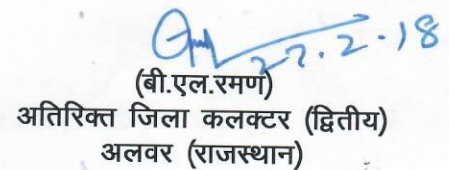 27.2.18
(बी.एल.रमण)
अतिरिक्त जिला कलक्टर (द्वितीय)
अलवर (राजस्थान)